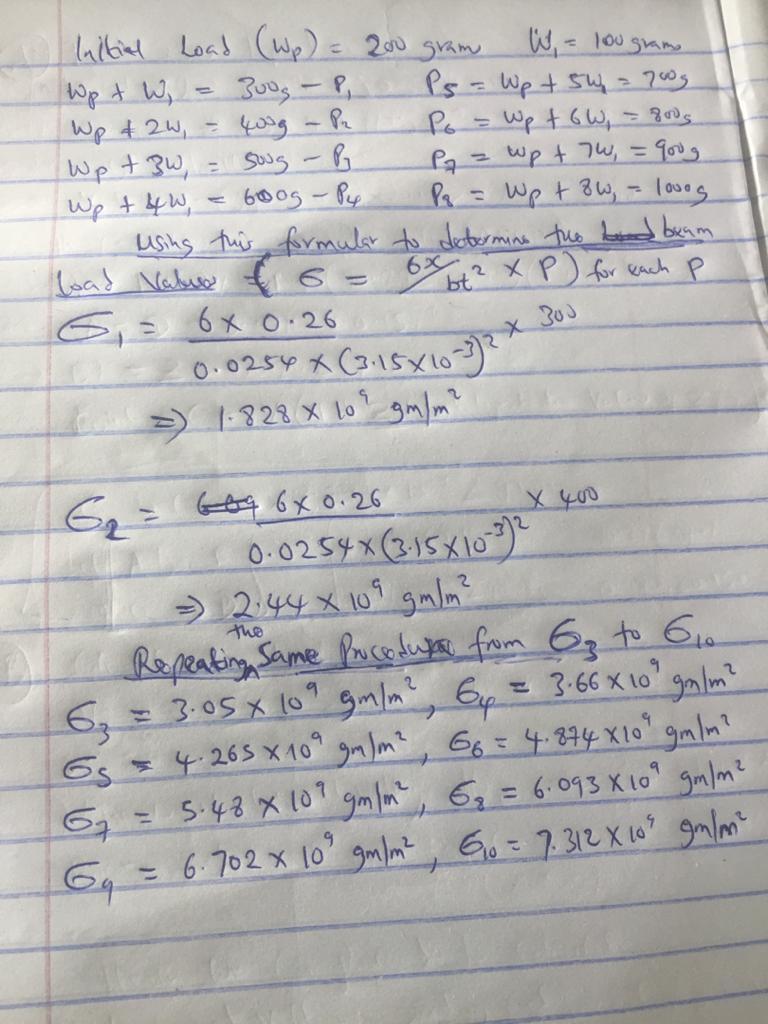 Initial Load (Wp) = 200 gram W₁ = 100 grams
Wp + W₁ = 300g – P₁ P5 = Wp + 5W₁ = 700g
Wp + 2W₁ = 400g – P₂ P6 = Wp + 6W₁ = 800g
Wp + 3W₁ = 500g – P3 P7 = Wp + 7W₁ = 900g
Wp + 4W₁ = 600g – P4 P8 = Wp + 8W₁ = 1000g
Using this formular to determine the beam
Load Values (б = 6x/bt² × P) for each P
б₁ = 6 × 0.26 / 0.0254 × (3.15×10⁻³)² × 300
⇒ 1.828 × 10⁹ gm/m²
б₂ = 6 × 0.26 / 0.0254 × (3.15×10⁻³)² × 400
⇒ 2.44 × 10⁹ gm/m²
Repeating the Same Procedure from б3 to б10
б3 = 3.05 × 10⁹ gm/m², б4 = 3.66 × 10⁹ gm/m²
б5 = 4.265 × 10⁹ gm/m², б6 = 4.874 × 10⁹ gm/m²
б7 = 5.48 × 10⁹ gm/m², б8 = 6.093 × 10⁹ gm/m²
б9 = 6.702 × 10⁹ gm/m², б10 = 7.312 × 10⁹ gm/m²